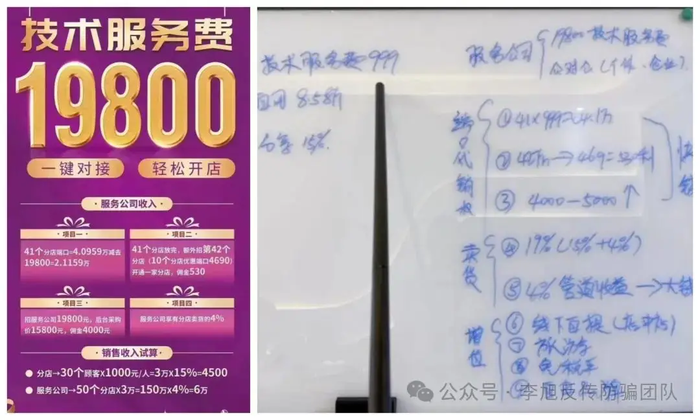 技术服务费
19800
一键对接
轻松开店
服务公司收入
项目一
41个分店端口=4.0959万减去
19800=2.1159万
项目二
41个分店放完，额外招第42个
分店（10个分店优惠端口4690）
开通一家分店，佣金530
项目三
招服务公司19800元，后台采购
价15800元，佣金4000元
项目四
服务公司享有分店卖货的4%
销售收入试算
分店→30个顾客X1000元/人=3万X15%=4500
服务公司→50个分店X3万=150万X4%=6万
技术服务费999
自用 8.5折
分享 15%
服务公司
19800技术服务费
①41×999=4.1万
③ 4000-5000↑
卖货
④ 19%（15%+4%）
⑤4%管道收益→
增值
⑥ 线下直播
⑦
⑧ 免税车
公众号·李旭反传防骗团队